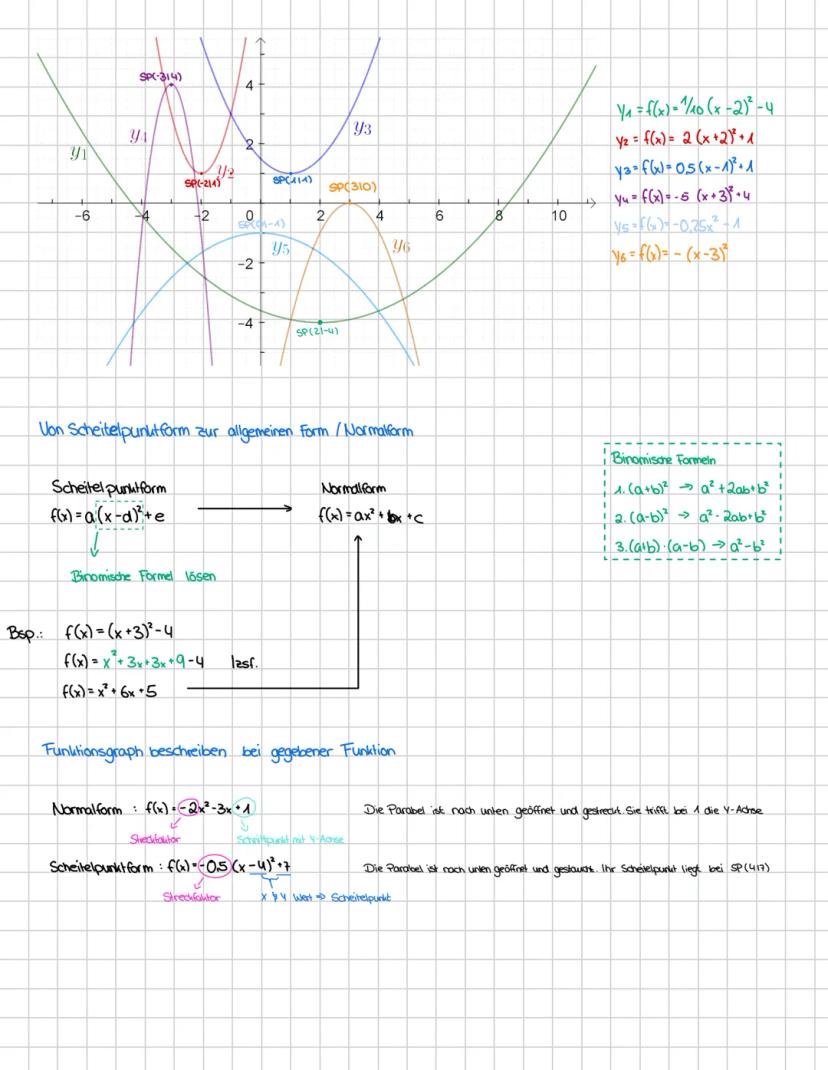 SP(-3|4)
y1
y4
y2
SP(-2|1)
y3
SP(1|1)
SP(3|0)
SP(0|-1)
y5
y6
SP(2|-4)
-6 -4 -2 0 2 4 6 8 10
4
2
-2
-4
y₁ = f(x) = 1/10 (x - 2)² - 4
y₂ = f(x) = 2 (x+2)² + 1
y₃ = f(x) = 0,5 (x - 1)² + 1
y₄ = f(x) = -5 (x+3)² + 4
y₅ = f(x) = -0,25x² - 1
y₆ = f(x) = - (x-3)²
Von Scheitelpunktform zur allgemeinen Form / Normalform
Scheitelpunktform
f(x) = a (x-d)² + e
Normalform
f(x) = ax² + bx + c
Binomische Formel lösen
Binomische Formeln
1. (a+b)² → a² + 2ab + b²
2. (a-b)² → a² - 2ab + b²
3. (a+b)·(a-b) → a² - b²
Bsp.: f(x) = (x+3)² - 4
f(x) = x² + 3x + 3x + 9 - 4 |zsf.
f(x) = x² + 6x + 5
Funktionsgraph beschreiben bei gegebener Funktion
Normalform : f(x) = -2x² - 3x + 1
Die Parabel ist nach unten geöffnet und gestreckt. Sie trifft bei 1 die Y-Achse
Streckfaktor
Schnittpunkt mit Y-Achse
Scheitelpunktform : f(x) = -0,5 (x - 4)² + 7
Die Parabel ist nach unten geöffnet und gestaucht. Ihr Scheitelpunkt liegt bei SP(4|7)
Streckfaktor
x & y Wert ⇒ Scheitelpunkt